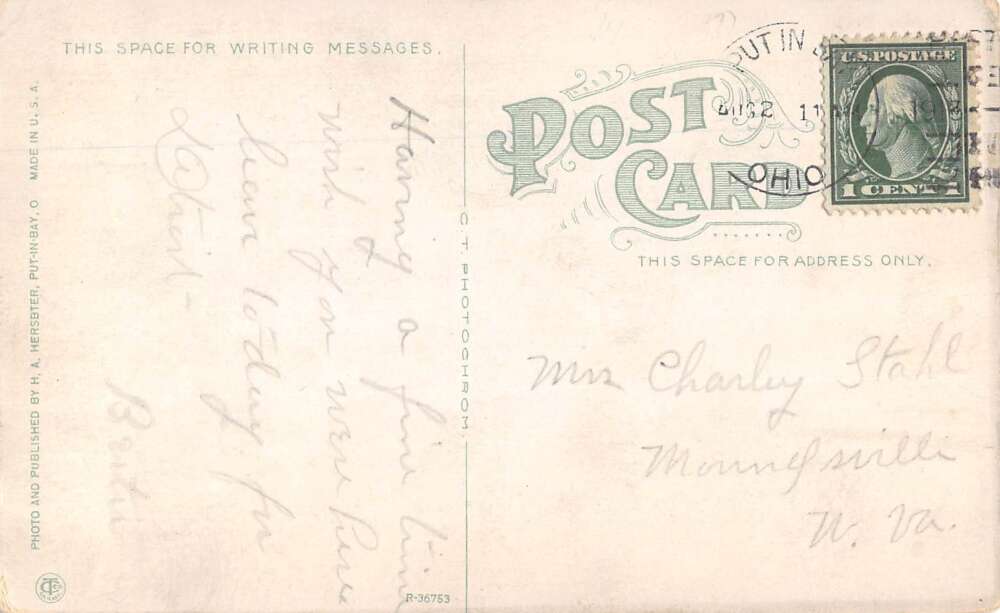 THIS SPACE FOR WRITING MESSAGES.
Having a fine time
& wish you were here
leave to-day for
Detroit-
POST CARD
THIS SPACE FOR ADDRESS ONLY.
PUT IN
AUG 2 11
OHIO
U.S. POSTAGE
1 CENT 1
Mrs Charley Stahl
Moundsville
W. Va.
C. T. PHOTOCHROM
R-36753
PHOTO AND PUBLISHED BY H. A. HERSBTER, PUT-IN-BAY, O MADE IN U. S. A.